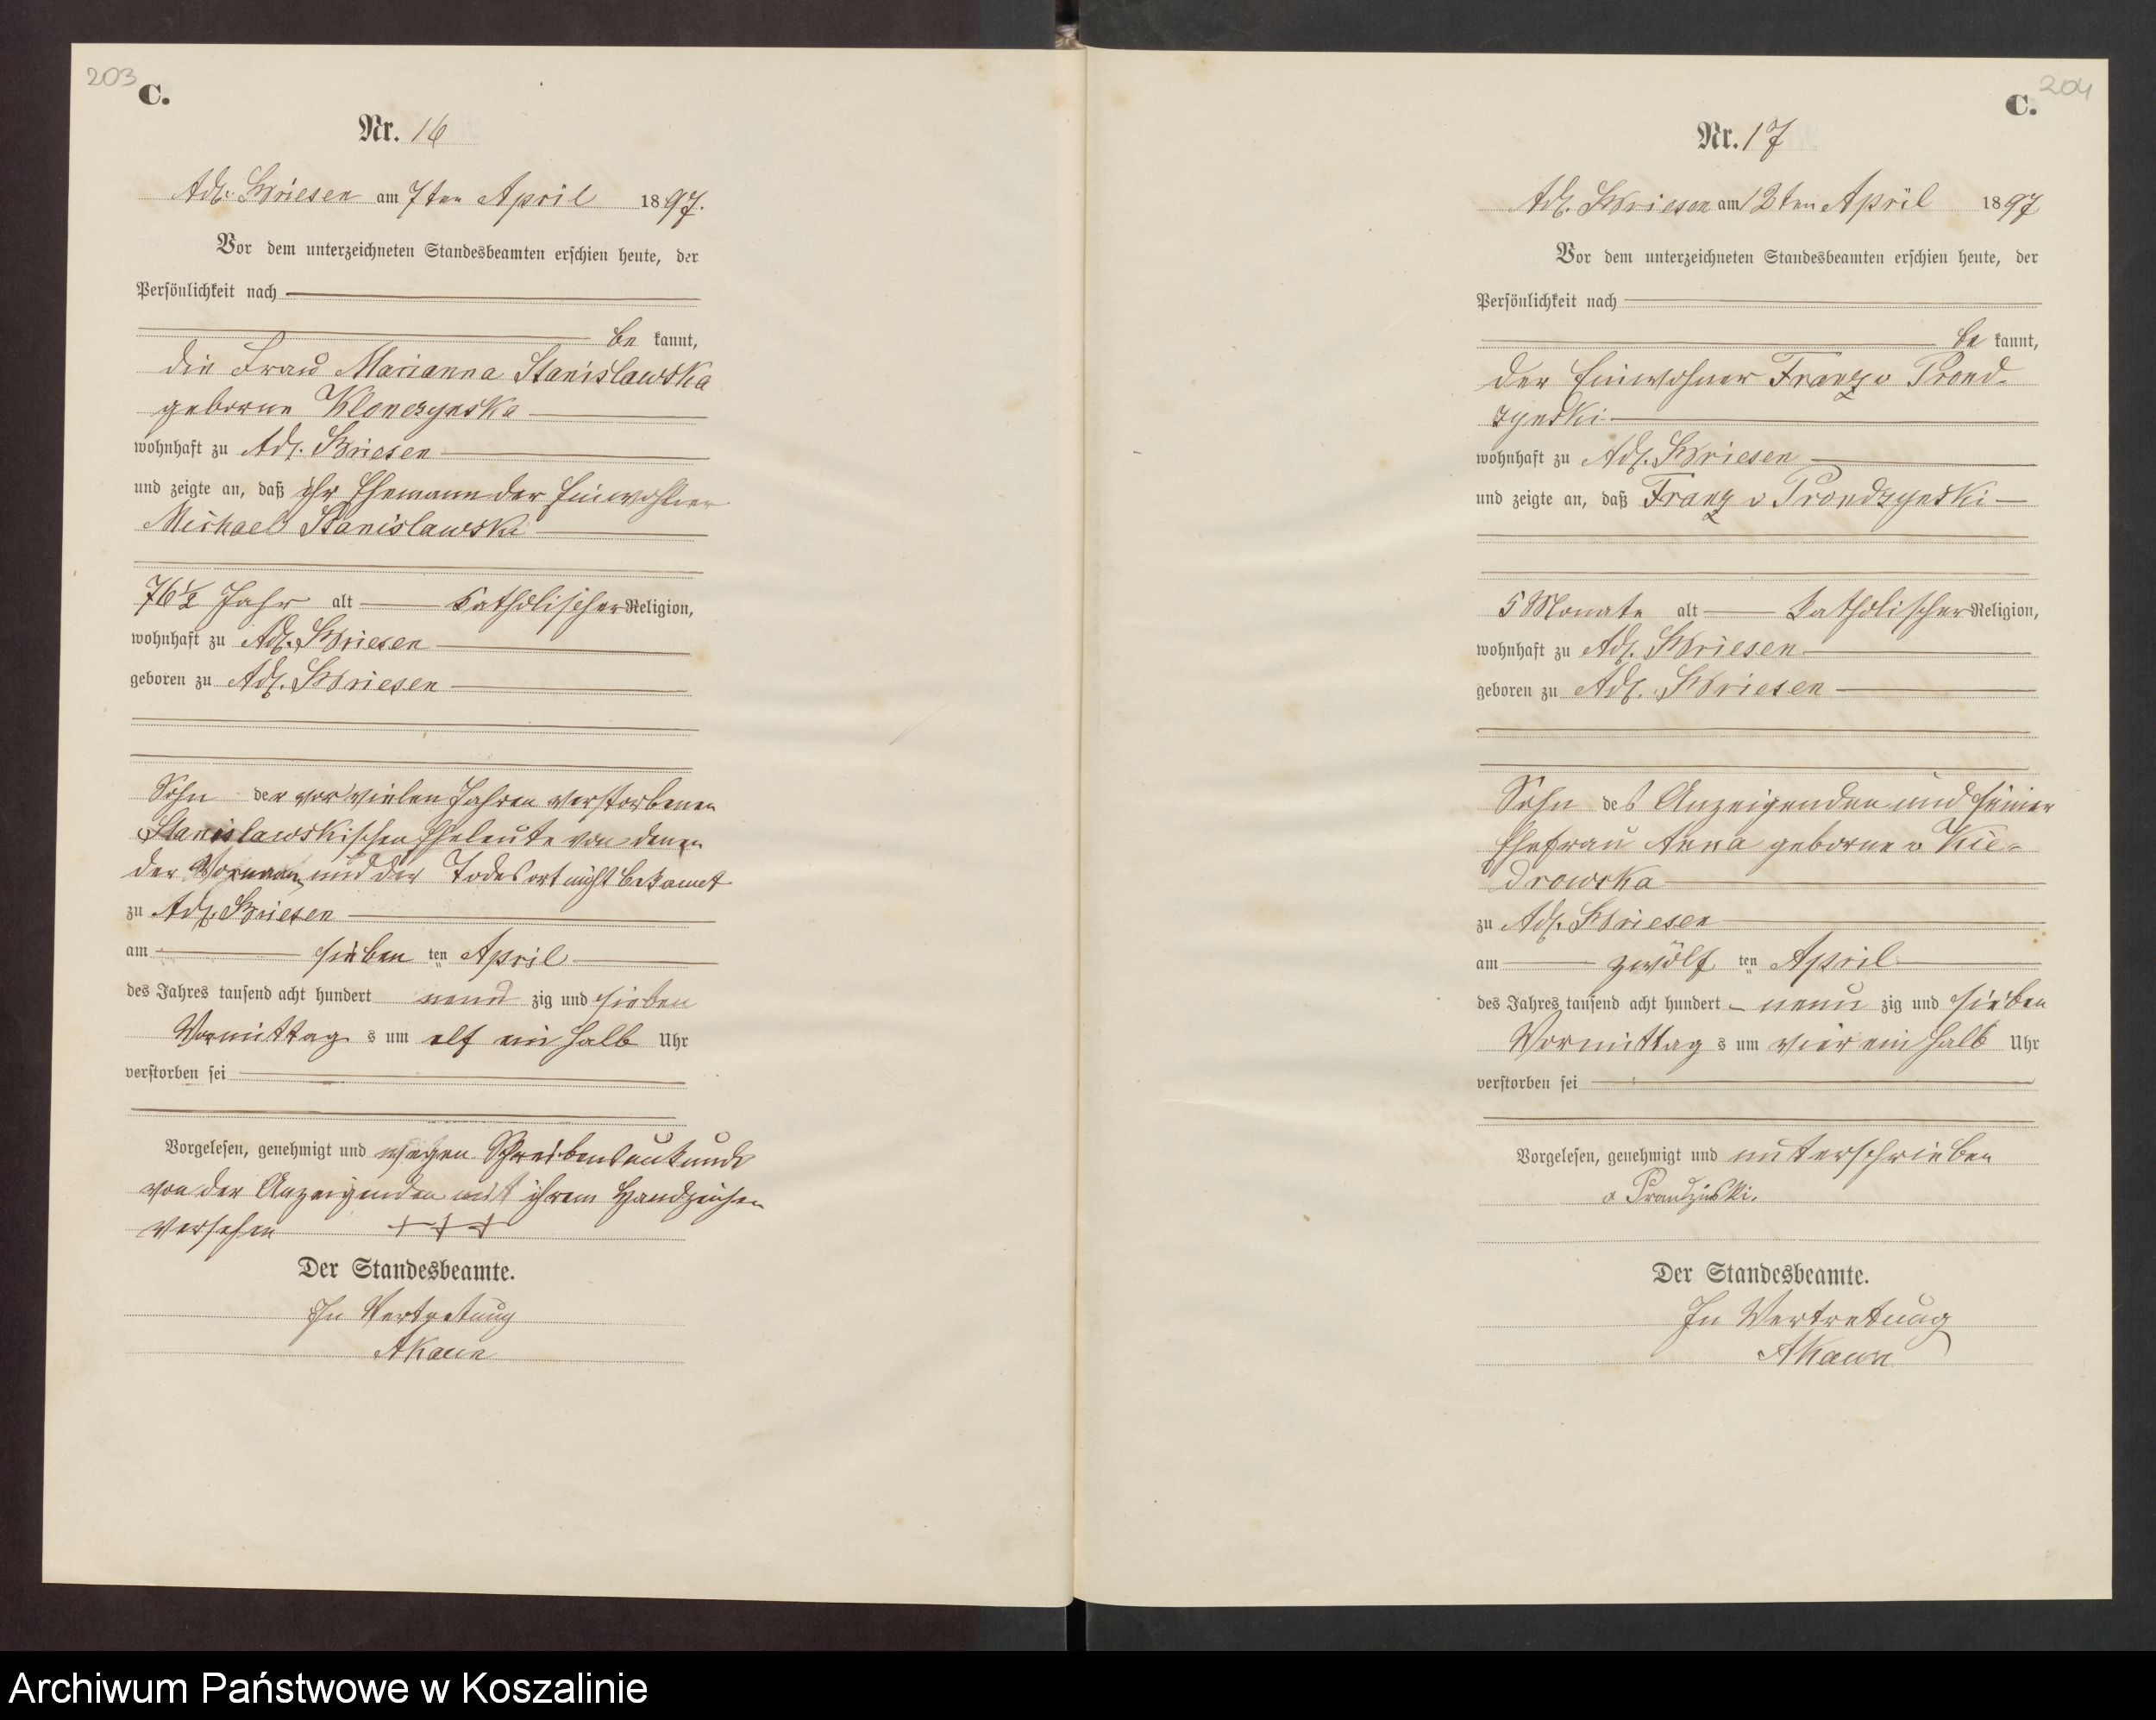 203
C.
Nr. 16
Adl. Briesen am 7ten April 1897.
Vor dem unterzeichneten Standesbeamten erschien heute, der
Persönlichkeit nach
be kannt,
die Frau Marianna Stanislawska
geborne Klonczynska
wohnhaft zu Adl. Briesen
und zeigte an, daß ihr Ehemann der Einwohner
Michael Stanislawski
76½ Jahr alt katholischer Religion,
wohnhaft zu Adl. Briesen
geboren zu Adl. Briesen
Sohn der vor vielen Jahren verstorbenen
Stanislawskischen Eheleute von denen
der Vornamen und der Todesort nicht bekannt
zu Adl. Briesen
am sieben ten April
des Jahres tausend acht hundert neun zig und sieben
Vormittag s um elf ein halb Uhr
verstorben sei
Vorgelesen, genehmigt und wegen Schreibensunkunde
von der Anzeigenden mit ihrem Handzeichen
versehen +++
Der Standesbeamte.
In Vertretung
204
C.
Nr. 17
Adl. Briesen am 12ten April 1897
Vor dem unterzeichneten Standesbeamten erschien heute, der
Persönlichkeit nach
be kannt,
der Einwohner Franz v Prond-
zynski
wohnhaft zu Adl. Briesen
und zeigte an, daß Franz v Prondzynski
5 Monate alt katholischer Religion,
wohnhaft zu Adl. Briesen
geboren zu Adl. Briesen
Sohn des Anzeigenden und seiner
Ehefrau Anna geborne v Kie-
drowska
zu Adl. Briesen
am zwölf ten April
des Jahres tausend acht hundert neun zig und sieben
Vormittag s um vier ein halb Uhr
verstorben sei
Vorgelesen, genehmigt und unterschrieben
v Prondzinski.
Der Standesbeamte.
In Vertretung
Archiwum Państwowe w Koszalinie